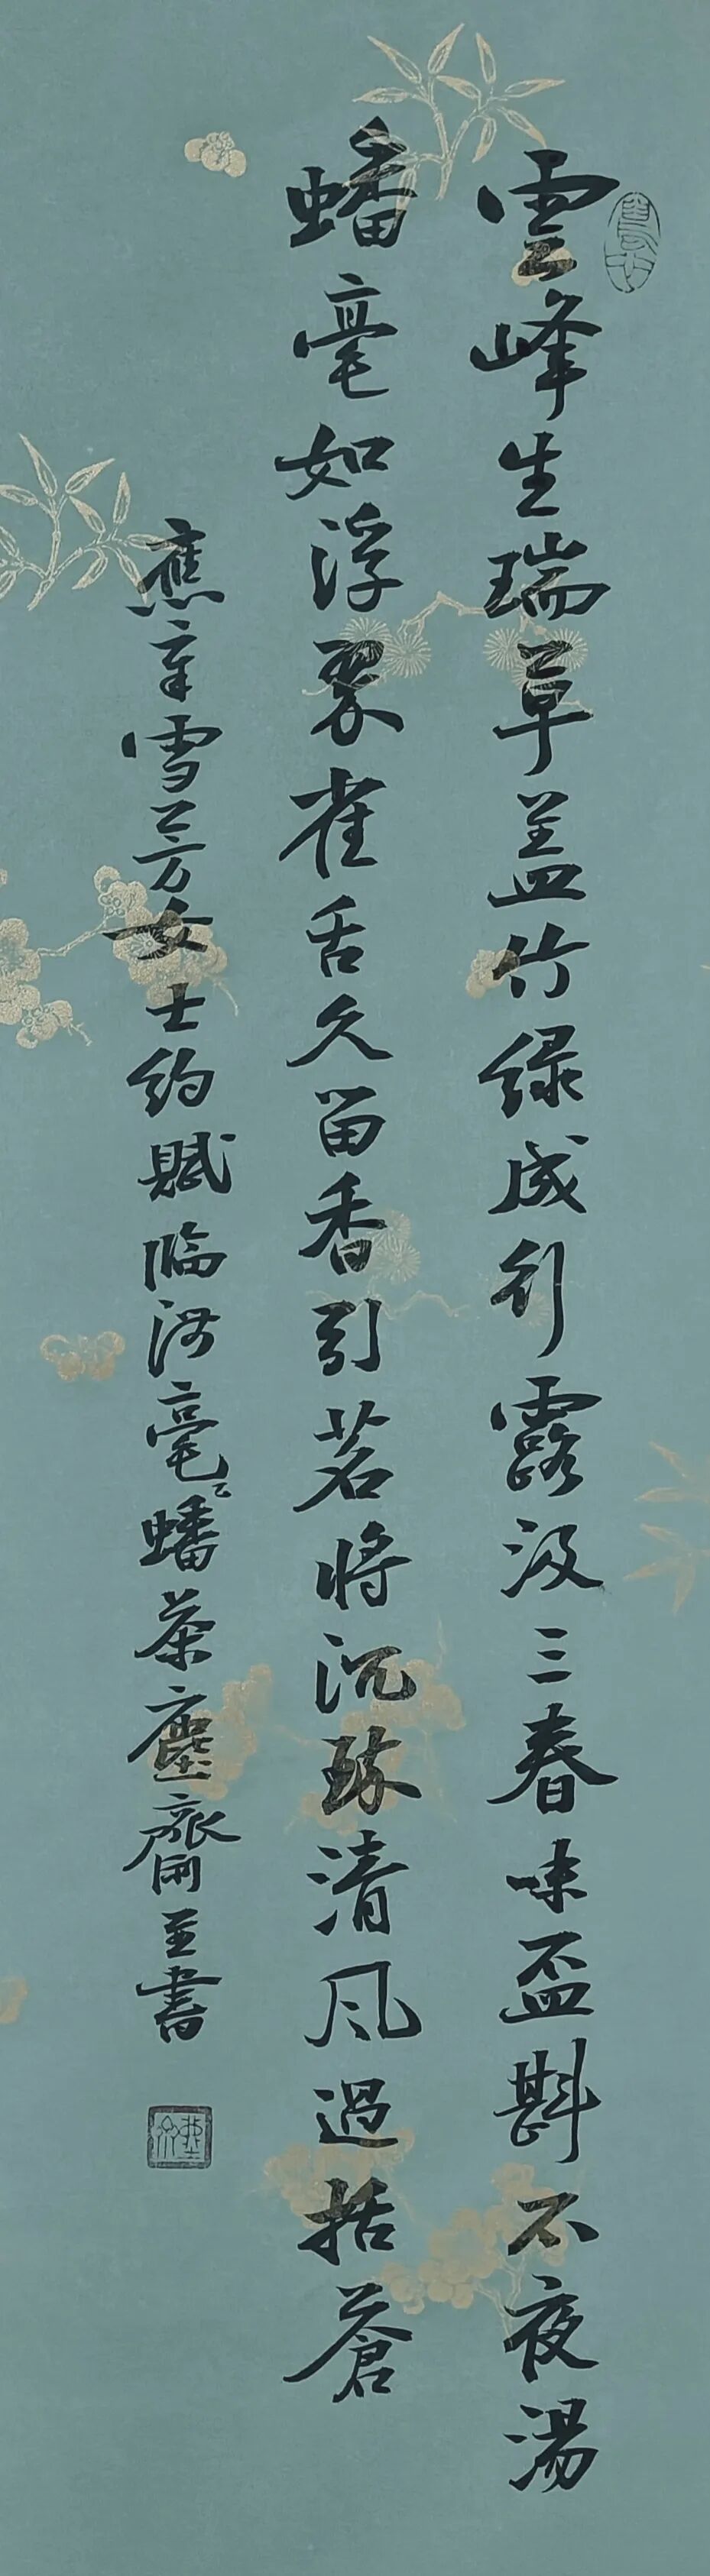 雲峰生瑞草盖竹绿成行露汲三春味盃斟不夜湯
蟠毫如浮翠雀舌久留香引茗將沉琢清风過括蒼
應辛雪芳女士約賦临海蟠毫茶塵齋並書